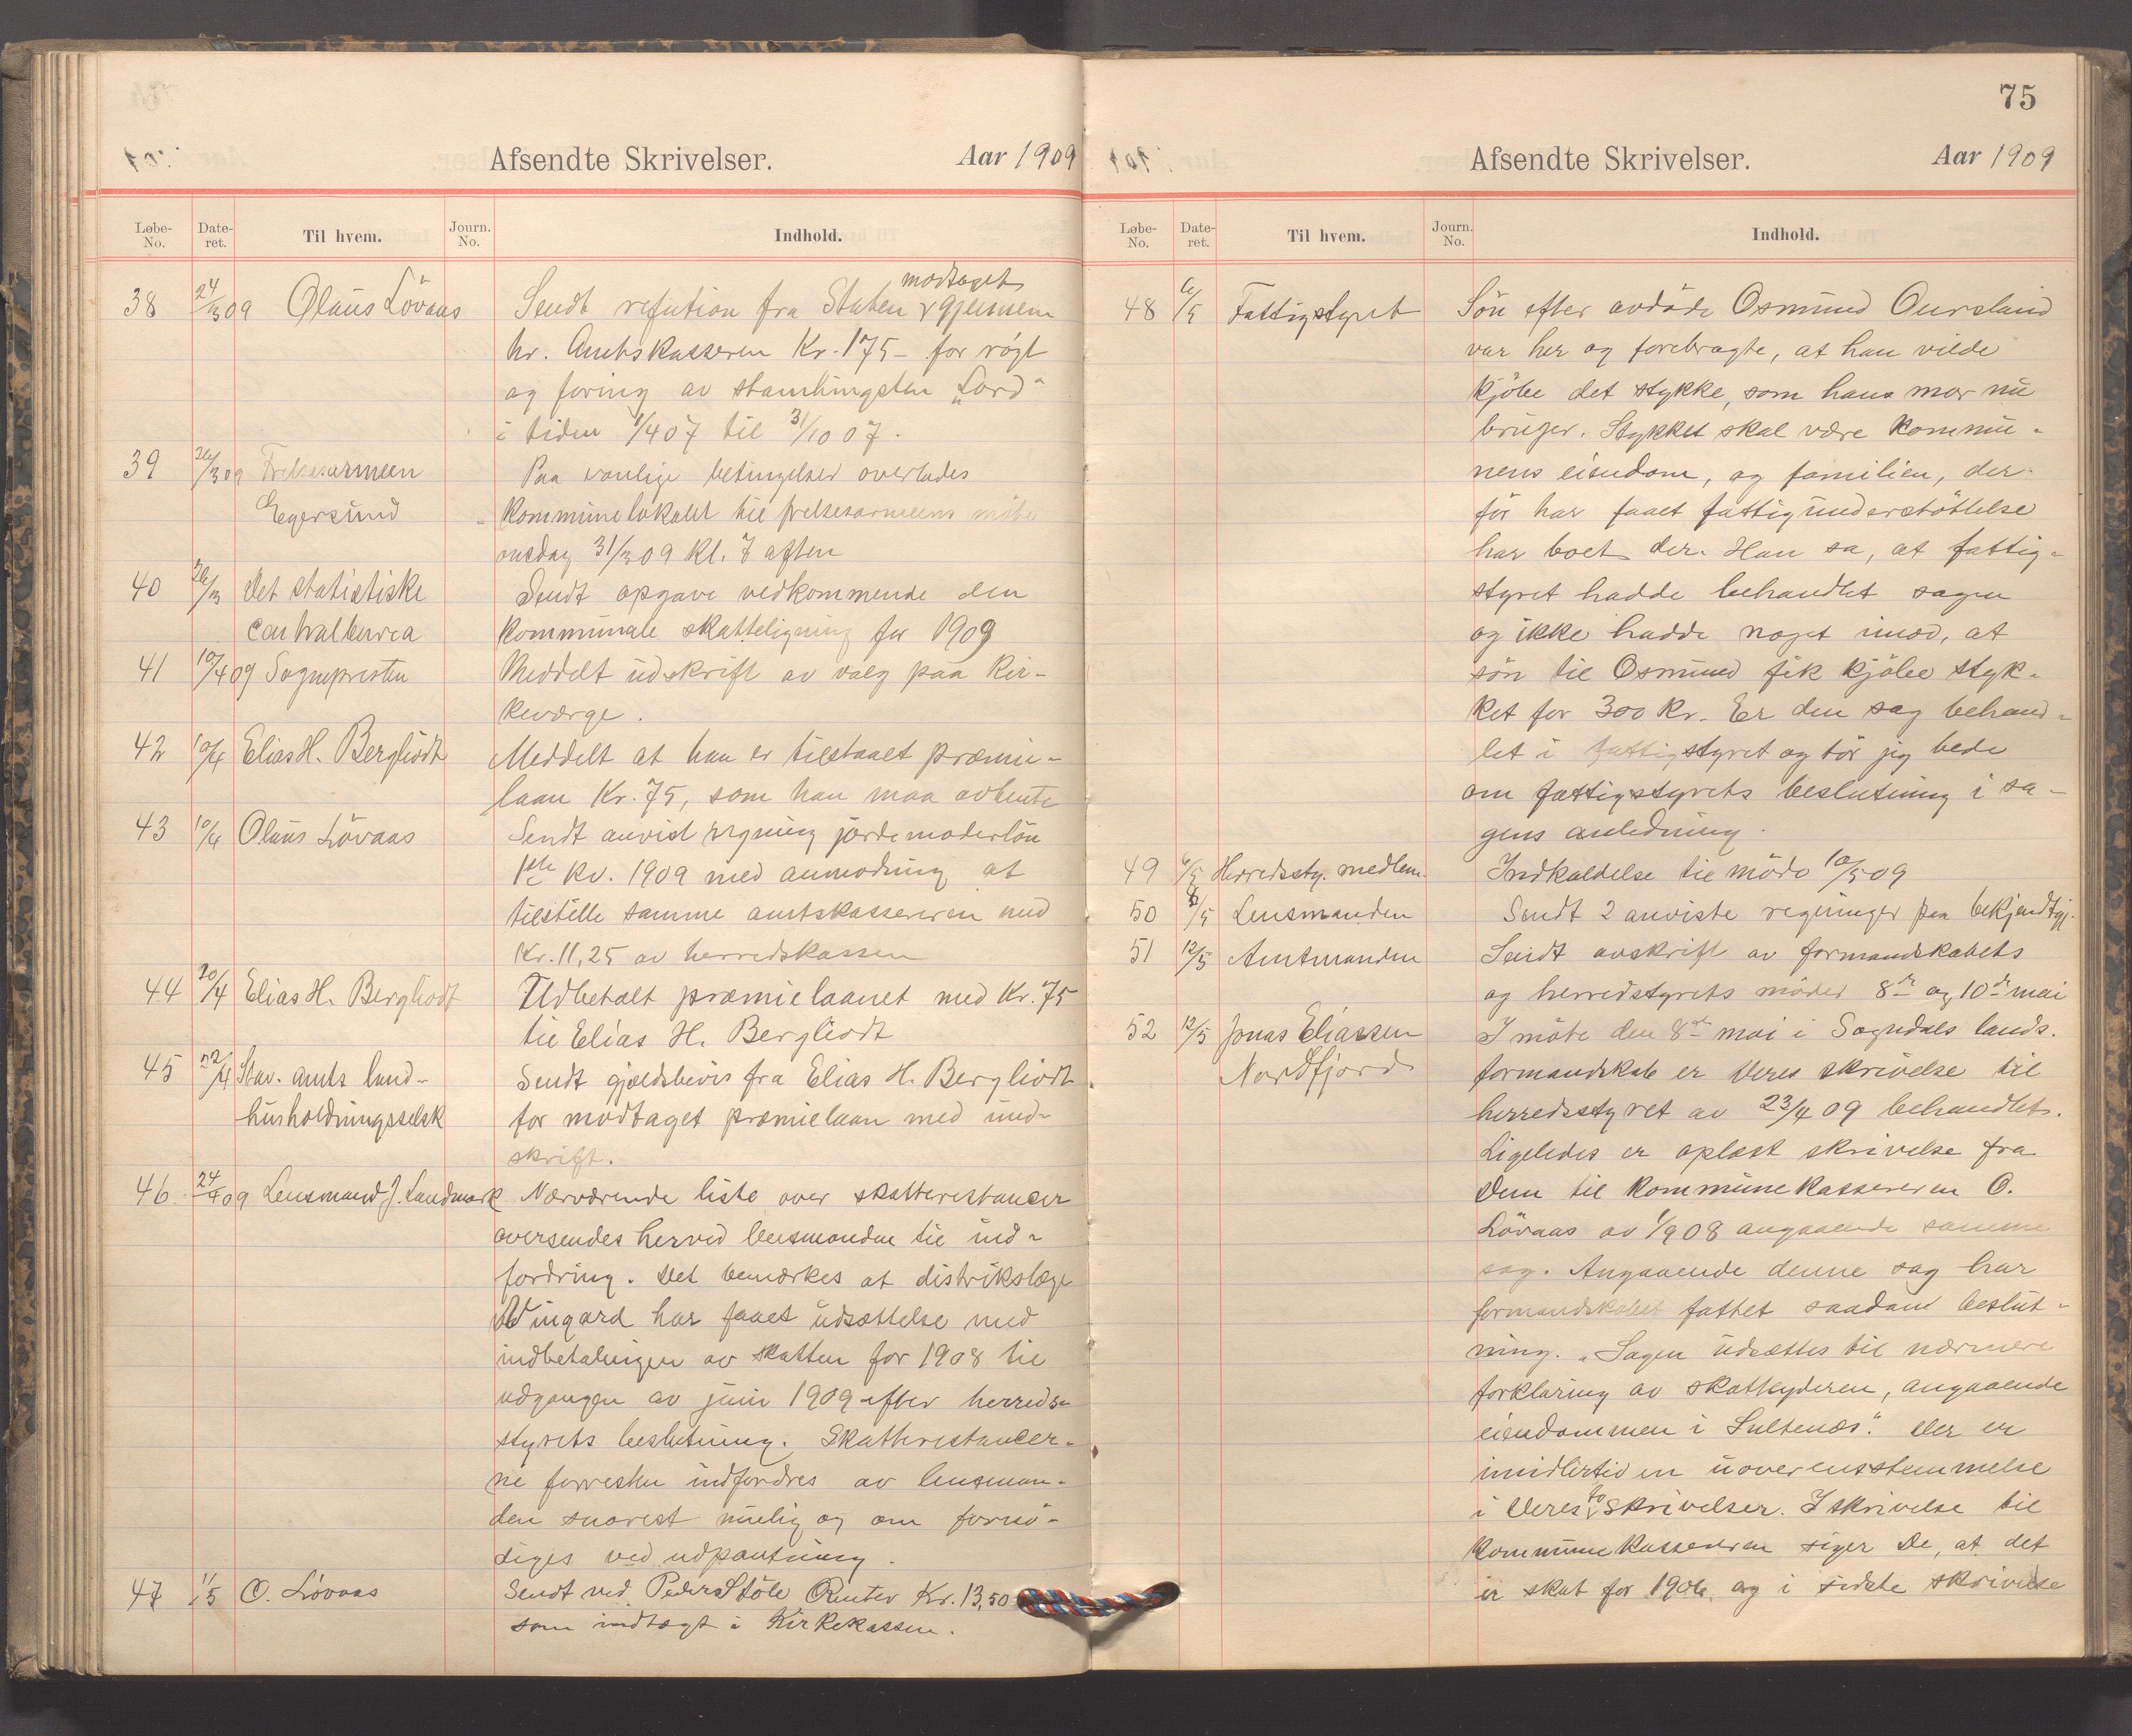 Afsendte Skrivelser. Aar 1909
Løbe-No. Date-ret. Til hvem. Journ. No. Indhold.
38 24/3 09 Olaus Lövaas Sendt refution fra Staten modtaget gjennem
hr. Amtskasseren Kr. 175 - for rögt
og foring av stamhingsten "Lord"
i tiden 1/4 07 til 31/10 07.
39 26/3 09 Frelsesarmeen Paa vanlige betingelser overlades
Egersund kommunelokalet til frelsesarmeens möte
onsdag 31/3 09 kl. 7 aften
40 26/3 Det statistiske Sendt opgave vedkommende den
centralbureau kommunale skatteligning for 1909
41 10/4 09 Sognepresten Meddelt udskrift av valg paa kir-
keværge.
42 10/4 Elias H. Bergliodt Meddelt at han er tilstaaet præmie-
laan Kr. 75, som han maa avhente
43 10/4 Olaus Lövaas Sendt anvist regning jordemoderlön
1ste kv. 1909 med anmodning at
tilstille samme amtskassereren med
Kr. 11,25 av herredskassen
44 20/4 Elias H. Bergliodt Udbetalt præmielaanet med Kr. 75
til Elias H. Bergliodt
45 22/4 Stav. amts land- Sendt gjældsbevis fra Elias H. Bergliodt
husholdningsselsk for modtaget præmielaan med und-
skrift.
46 24/4 09 Lensmand J. Landmark Nærværende liste over skatterestancer
oversendes herved lensmanden til ind-
fordring. Det bemærkes at distrikslæge
Wingard har faaet udsættelse med
indbetalingen av skatten for 1908 til
udgangen av juni 1909 efter herreds-
styrets beslutning. Skatterestancer-
ne forresten indfordres av lensman-
den snarest mulig og om fornö-
diges ved udpantning.
47 1/5 O. Lövaas Sendt ved Peder Stöle Renter Kr. 13,50
som indtægt i Kirkekassen.
75
Afsendte Skrivelser. Aar 1909
Løbe-No. Date-ret. Til hvem. Journ. No. Indhold.
48 6/5 Fattigstyret Sön efter avdöde Osmund Oursland
var her og forebragte, at han vilde
kjöbe det stykke, som hans mor nu
bruger. Stykket skal være kommu-
nens eiendom, og familien, der
för har faaet fattigunderstöttelse
har boet der. Han sa, at fattig-
styret hadde behandlet sagen
og ikke hadde noget imod, at
sön til Osmund fik kjöbe styk-
ket for 300 kr. Er den sag behand-
let i fattigstyret og tör jeg bede
om fattigstyrets beslutning i sa-
gens anledning.
49 6/5 Herredssty. medlem. Indkaldelse til möde 10/5 09
50 8/5 Lensmanden Sendt 2 anviste regninger paa bekjendtgj.
51 12/5 Amtmanden Sendt avskrift av formandskabets
og herredstyrets möder 8de og 10de mai
52 12/5 Jonas Eliassen I möte den 8de mai i Sogndals lands.
Nordfjord formandskab er Deres skrivelse til
herredsstyret av 23/4 09 behandlet.
Ligeledes er oplæst skrivelse fra
Dem til kommunekassereren O.
Lövaas av 1/9 08 angaaende samme
sag. Angaaende denne sag har
formandskabet fattet saadan beslut-
ning. "Sagen udsættes til nærmere
forklaring av skatteyderen, angaaende
eiendommen i Sultenæs." Der er
imidlertid en uoverensstemmelse
i Deres to skrivelser. I skrivelse til
kommunekassereren siger De, at det
er skat for 1906 og i sidste skrivelse